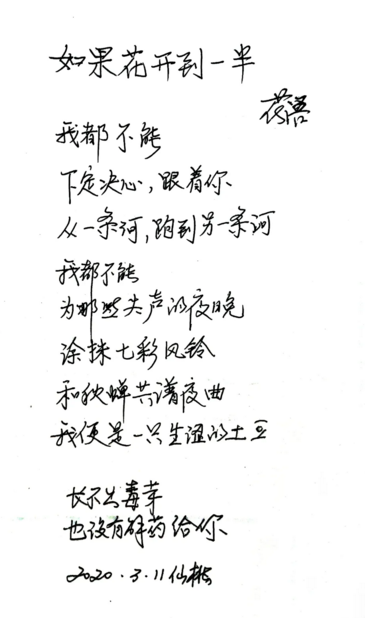 如果花开到一半
我都不能
下定决心，跟着你
从一条河，跑到另一条河
我都不能
为那些失声的夜晚
涂抹七彩风铃
和秋蝉共谱夜曲
我便是一只生涩的土豆
长不出毒芽
也没有解药给你
2020.3.11仙桃